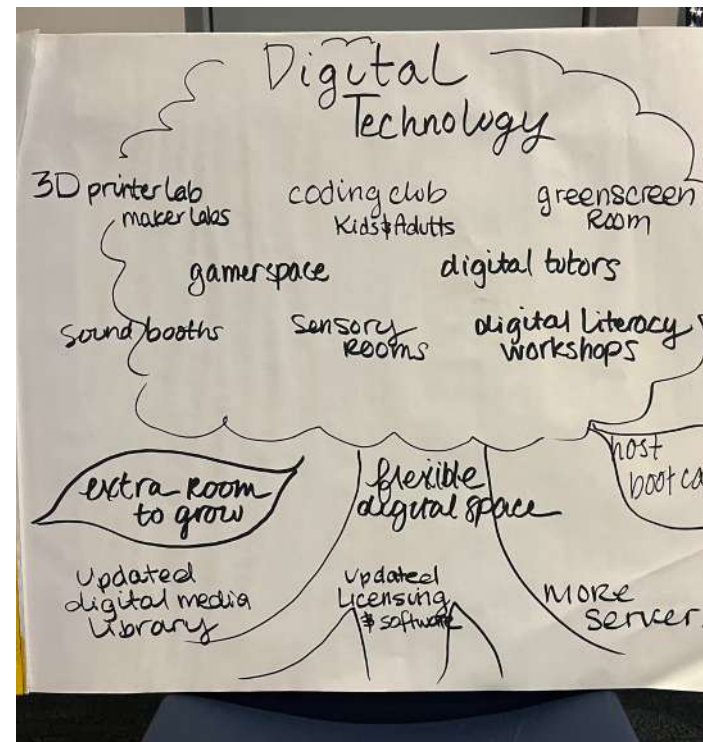 Digital
Technology
3D printer lab
maker labs
coding club
Kids & Adults
greenscreen
Room
gamerspace
digital tutors
sound booths
Sensory
Rooms
digital Literacy
workshops
extra Room
to grow
flexible
digital space
host
boot ca
Updated
digital media
Library
updated
Licensing
& software
MORE
server